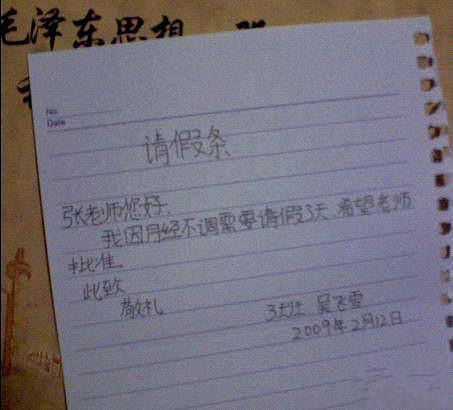 毛泽东思想
No.
Date
请假条
张老师您好.
我因月经不调需要请假3天.希望老师
批准.
此致
敬礼
3班 吴飞雪
2009年2月12日